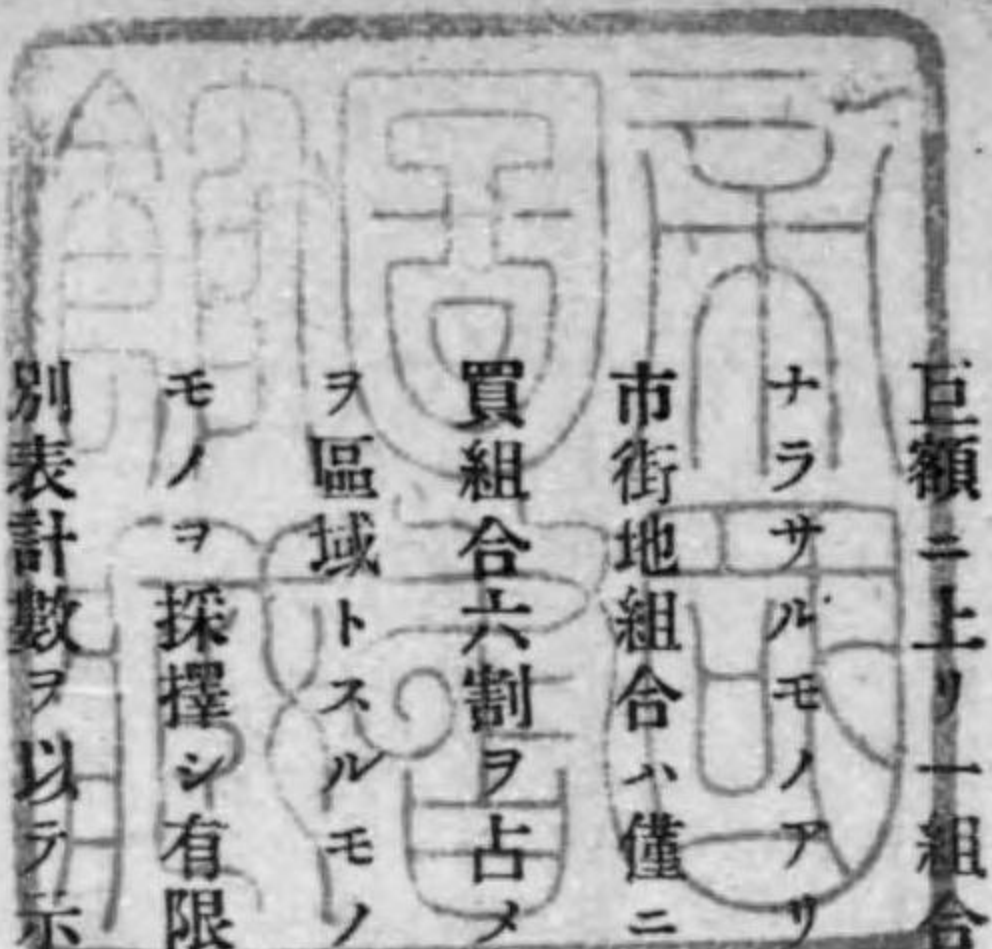 巨額ニ上リ一組合
ナラサルモノアリ
市街地組合ハ僅ニ
買組合六割ヲ占メ
ヲ區域トスルモノ
モノヲ採擇シ有限
別表計數ヲ以テ示